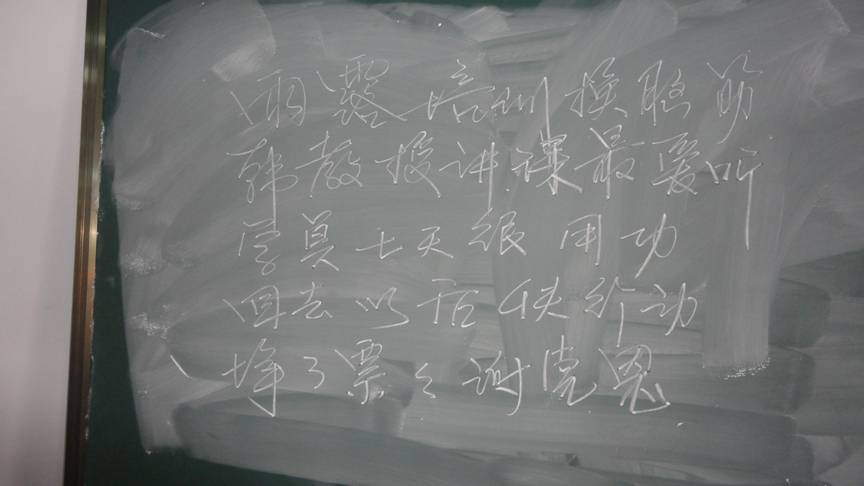 雨露培训换脑筋
韩教授讲课最爱听
学员七天很用功
回去以后快行动
挣了票票谢党恩